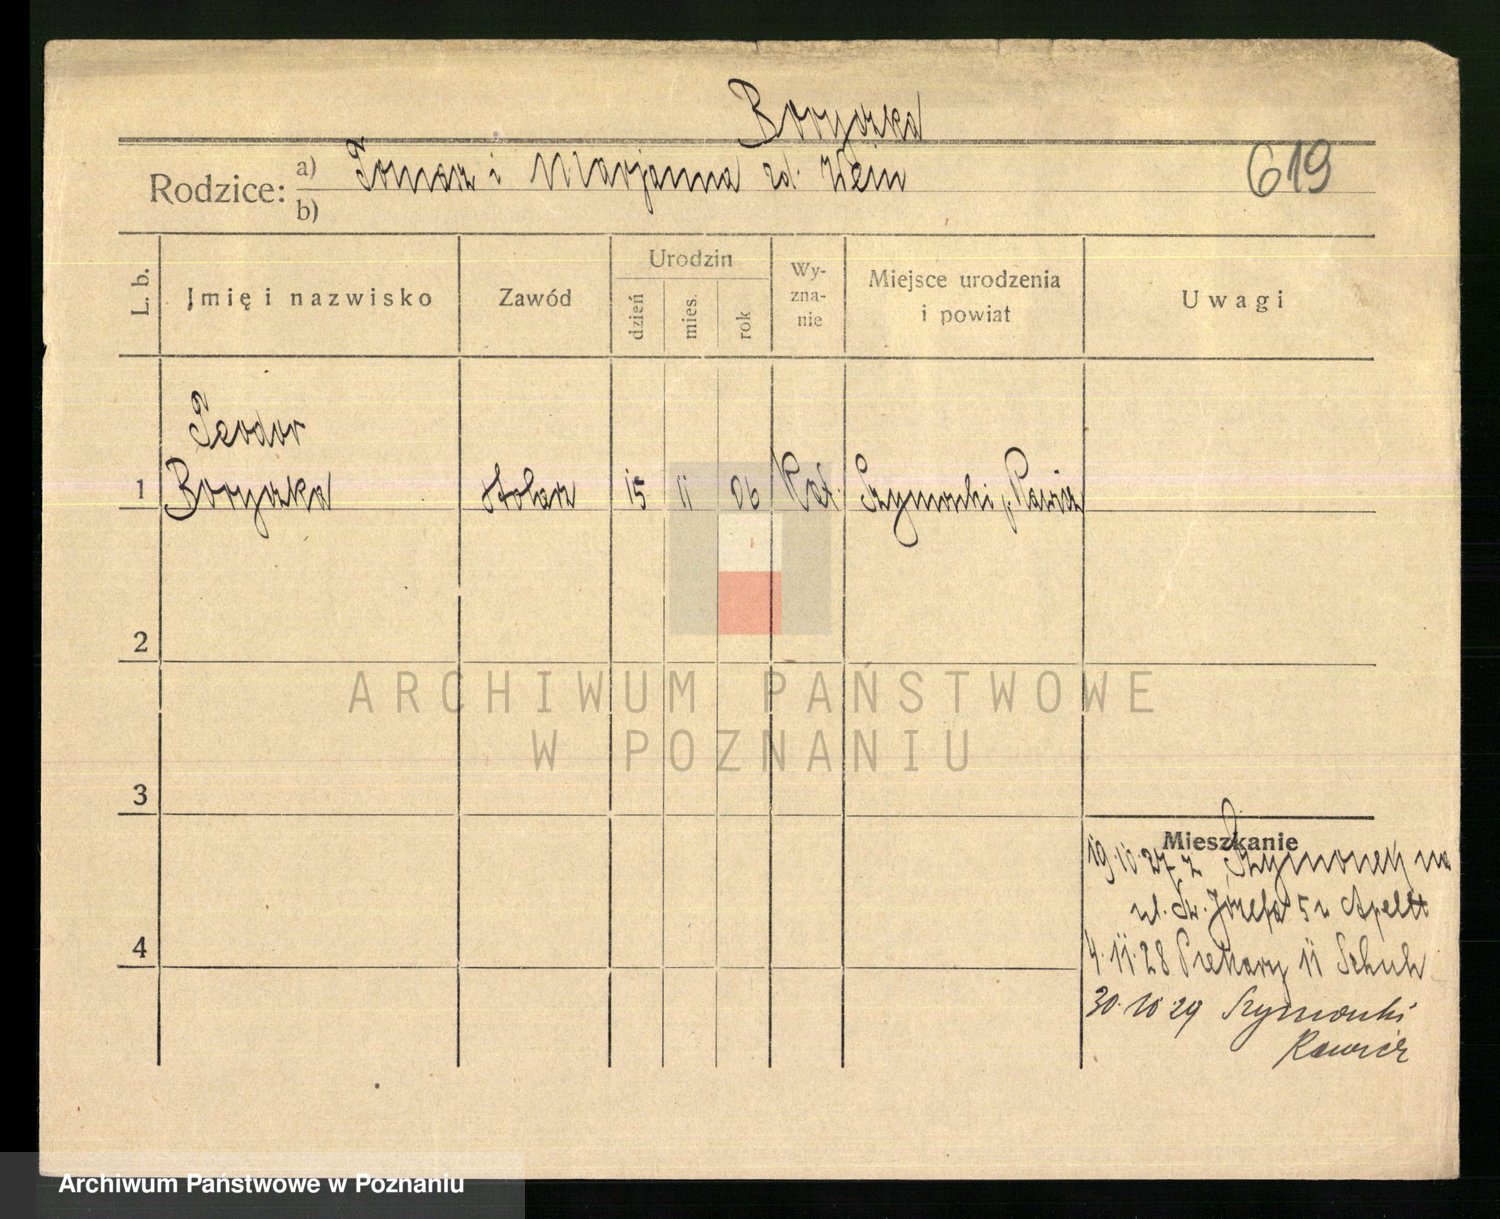 Boryczka
Rodzice: a) Tomasz i Marjanna zd. Klein
b)
619
L. b.
Imię i nazwisko
Zawód
Urodzin
dzień
mies.
rok
Wy-
zna-
nie
Miejsce urodzenia
i powiat
Uwagi
Teodor
1 Boryczka stolarz 15 11 06 Kat. Szymonki p. Rawicz
2
ARCHIWUM PAŃSTWOWE
W POZNANIU
3
Mieszkanie
19.10.27 z Szymonek na
ul. Św. Józefa 5 u Apelt
4
4.11.28 Piekary 11 Schulz
30.10 29 Szymonki
Rawicz
Archiwum Państwowe w Poznaniu